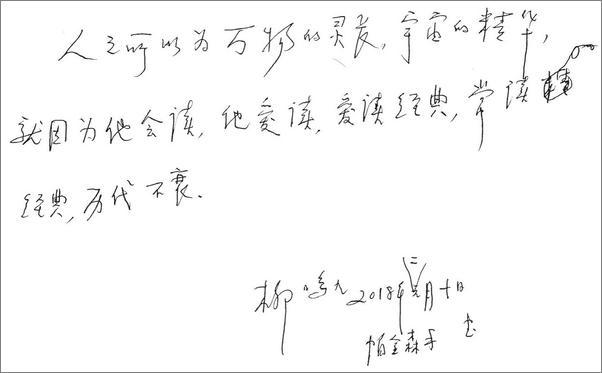 人之所以为万物的灵长，宇宙的精华，
就因为他会读，他爱读，爱读经典，常读
经典，历代不衰。
柳鸣九 2018年二月十日
帕金森手 书